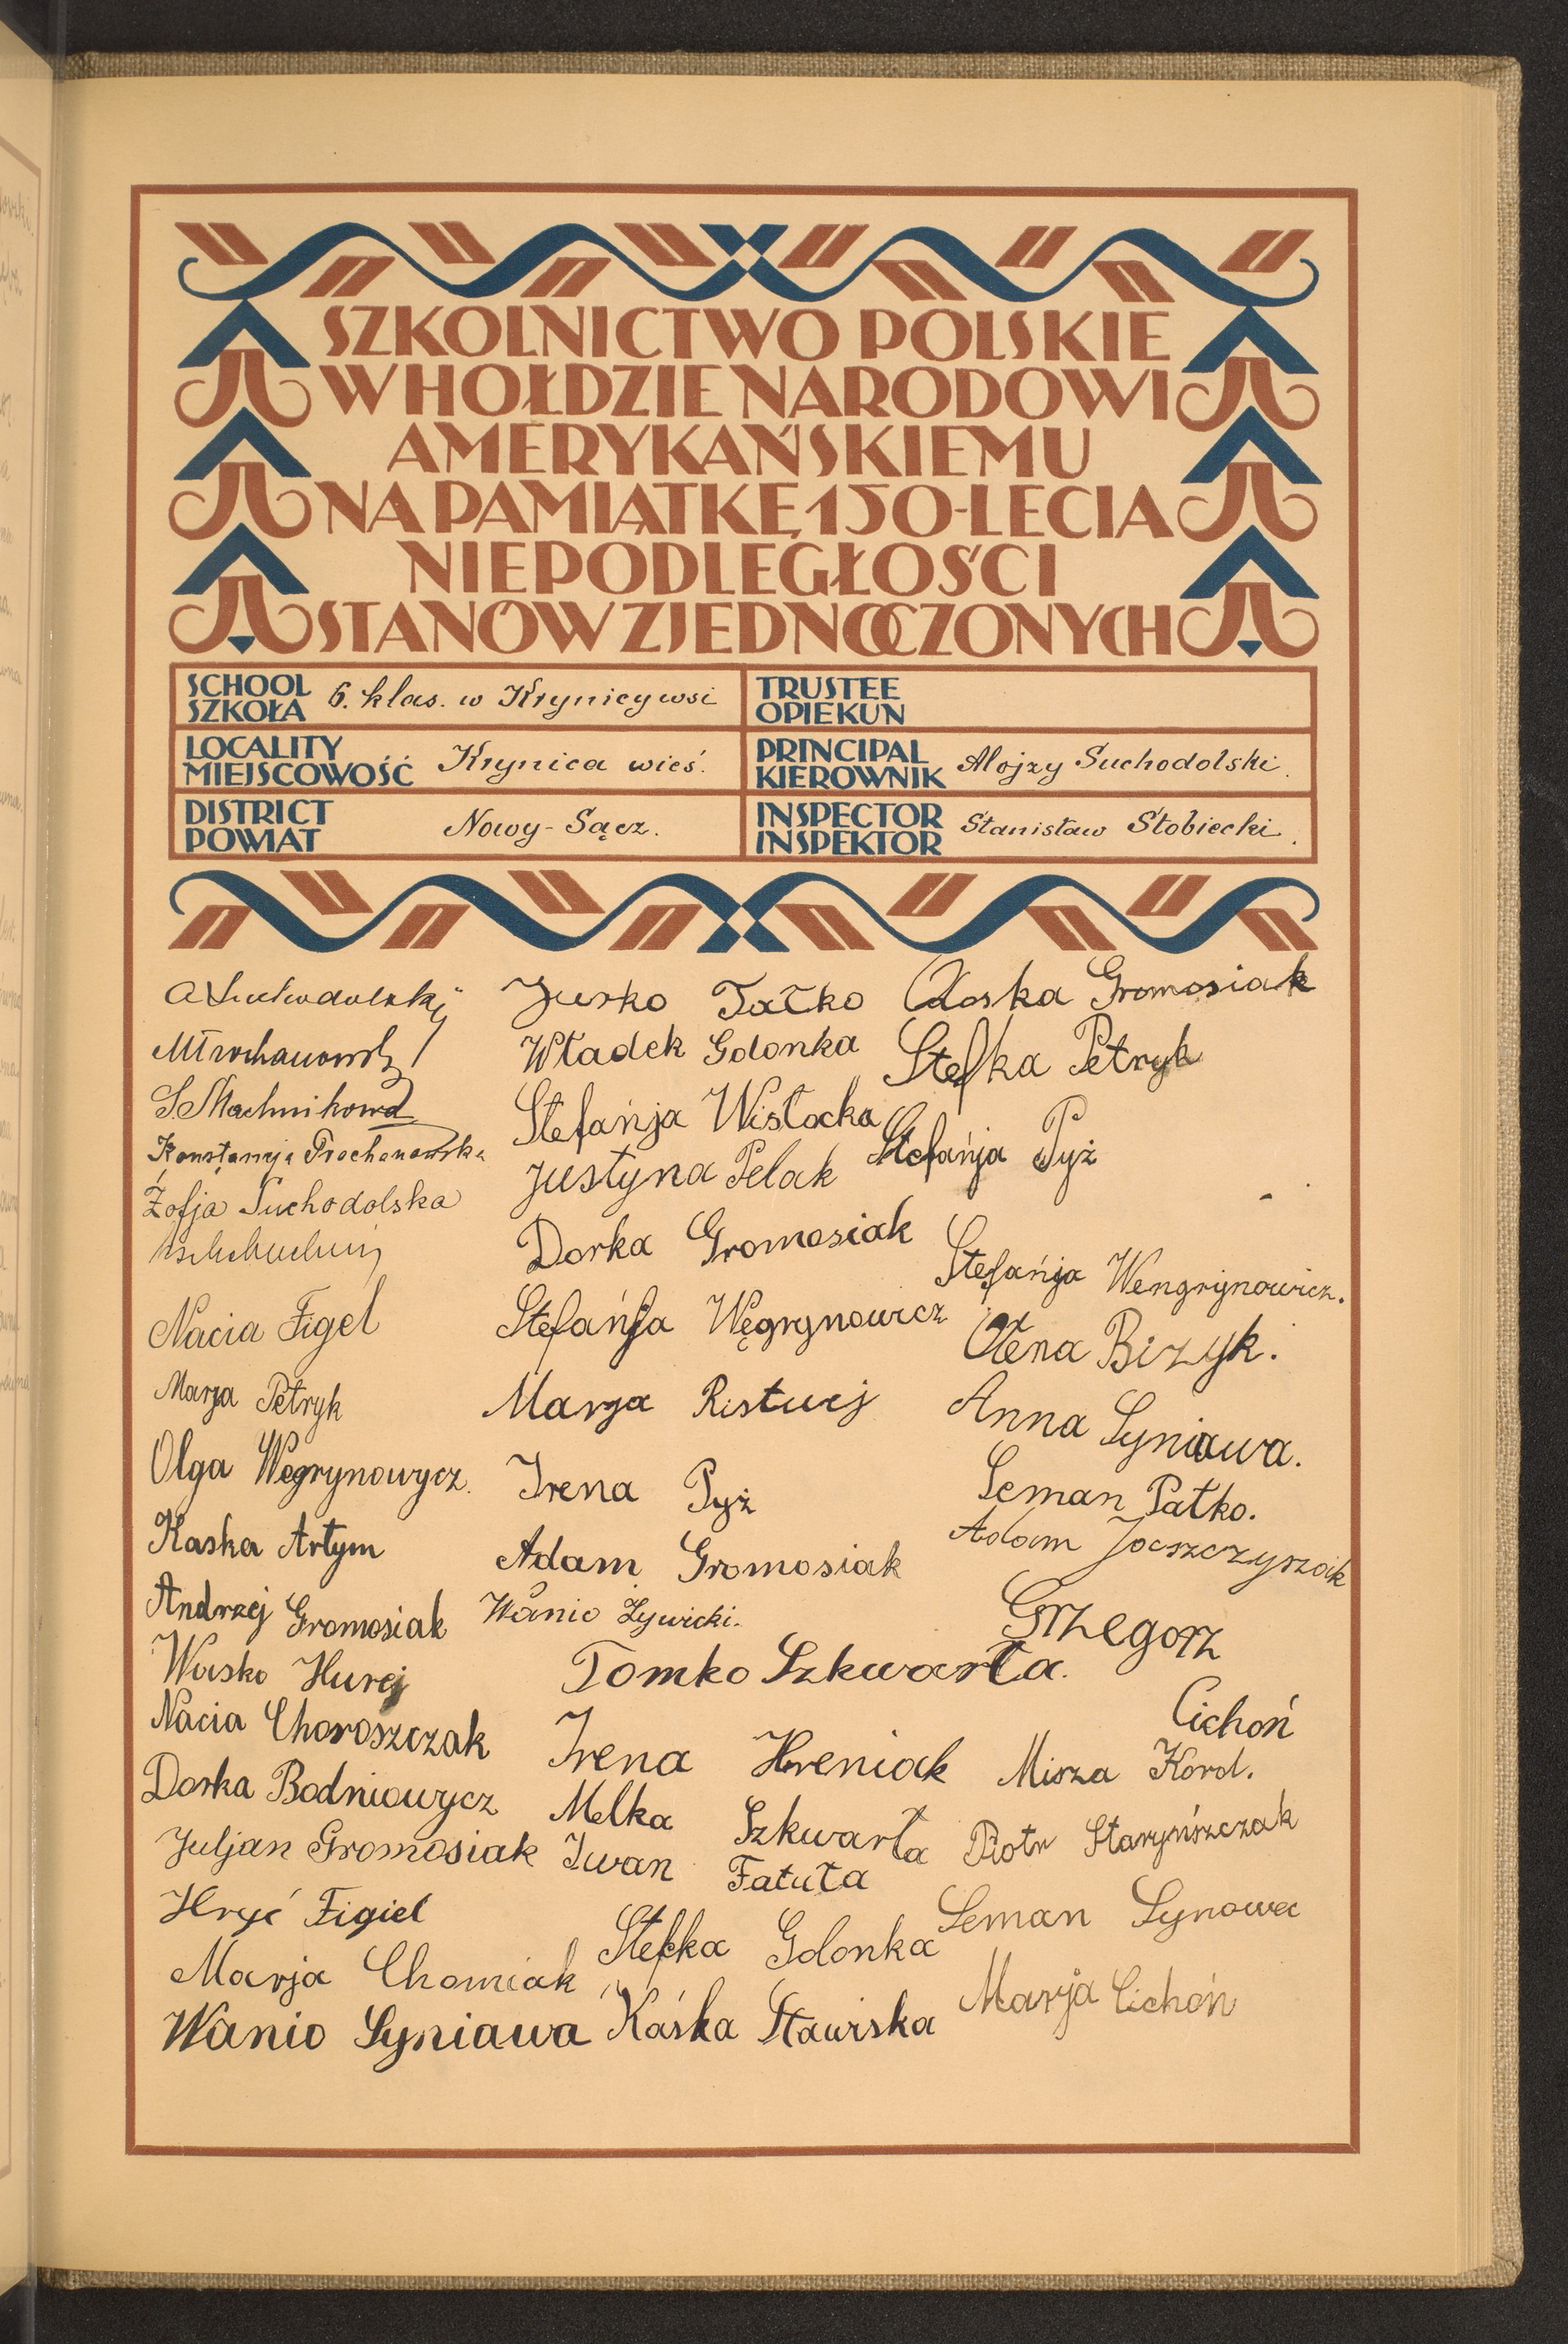 SZKOLNICTWO POLSKIE
W HOŁDZIE NARODOWI
AMERYKAŃSKIEMU
NA PAMIĄTKĘ 150-LECIA
NIEPODLEGŁOŚCI
STANÓW ZJEDNOCZONYCH
SCHOOL
SZKOŁA
6. klas. w Krynicy wsi
TRUSTEE
OPIEKUN
LOCALITY
MIEJSCOWOŚĆ
Krynica wieś.
PRINCIPAL
KIEROWNIK
Alojzy Suchodolski.
DISTRICT
POWIAT
Nowy-Sącz.
INSPECTOR
INSPEKTOR
Stanisław Stobiecki.
A Suchodolski
S. Machnikowa
Konstancja Prochanowska
Zofja Suchodolska
Nacia Figel
Marja Petryk
Olga Węgrynowycz.
Kaska Artym
Andrzej Gromosiak
Wasko Hurej
Nacia Choroszczak
Dorka Bodniowycz
Juljan Gromosiak
Hryć Figiel
Marja Chomiak
Wanio Syniawa
Jurko Tatko
Władek Golonka
Stefańja Wisłocka
Justyna Pelak
Dorka Gromosiak
Stefańja Węgrynowicz
Marja Ristwej
Irena Pyż
Adam Gromosiak
Wanio Żywicki.
Tomko Szkwarła.
Irena Hreniak
Melka Szkwarła
Iwan Fatuła
Stefka Golonka
Kaśka Stawiska
Gromosiak
Stefka Petryk
Stefańja Pyż
Stefańja Wengrynowicz.
Olena Bizyk.
Anna Syniawa.
Seman Patko.
Adam
Grzegorz
Cichoń
Misza Korol.
Piotr Staryńszczak
Seman Synowec
Marja Cichoń